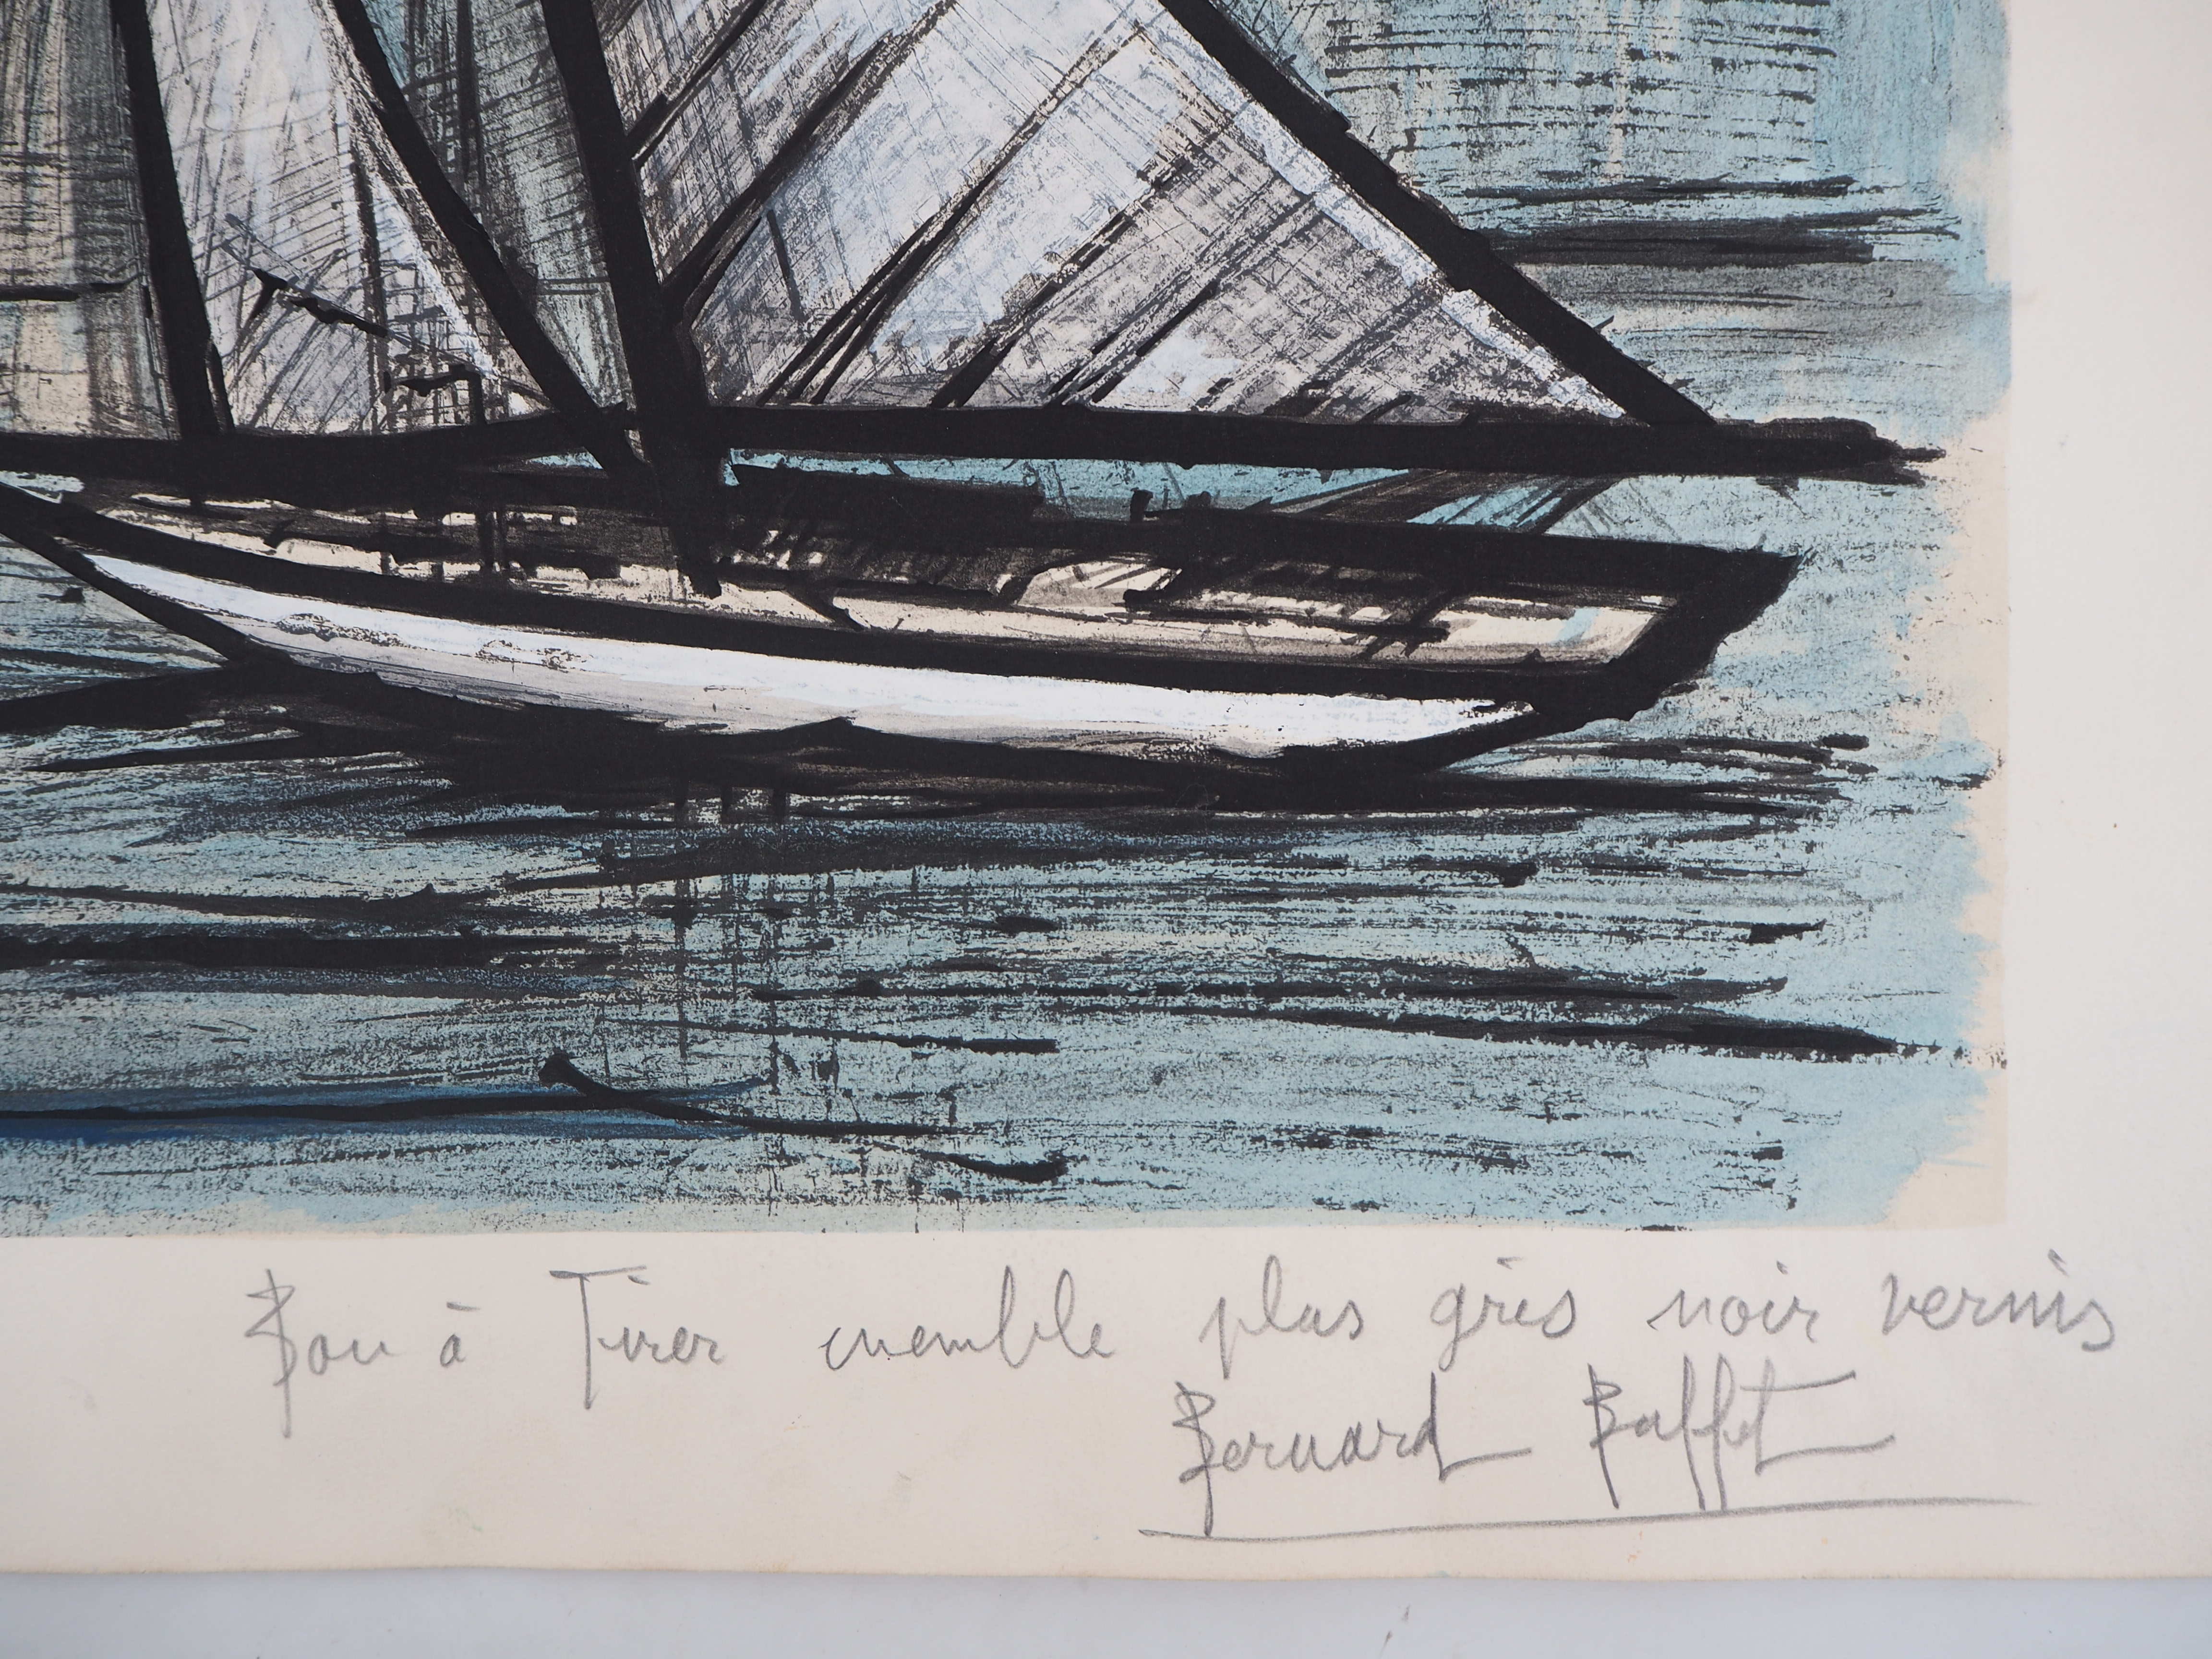 Bon à Tirer ensemble plus gris noir vernis
Bernard Buffet